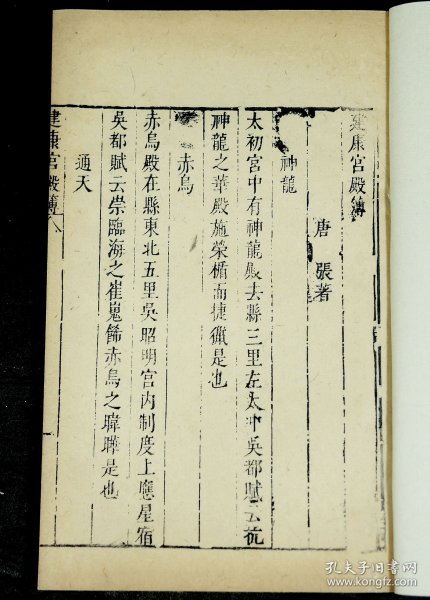 建康宮殿簿
唐 張著
神龍
太初宮中有神龍殿去縣三里左太冲吳都賦云抗
神龍之華殿施榮楯而捷獵是也
赤烏
赤烏殿在縣東北五里吳昭明宮內制度上應星宿
吳都賦云崇臨海之崔嵬餙赤烏之暐曄是也
通天
建康宮殿簿
孔夫子旧书网
www.kongfz.com